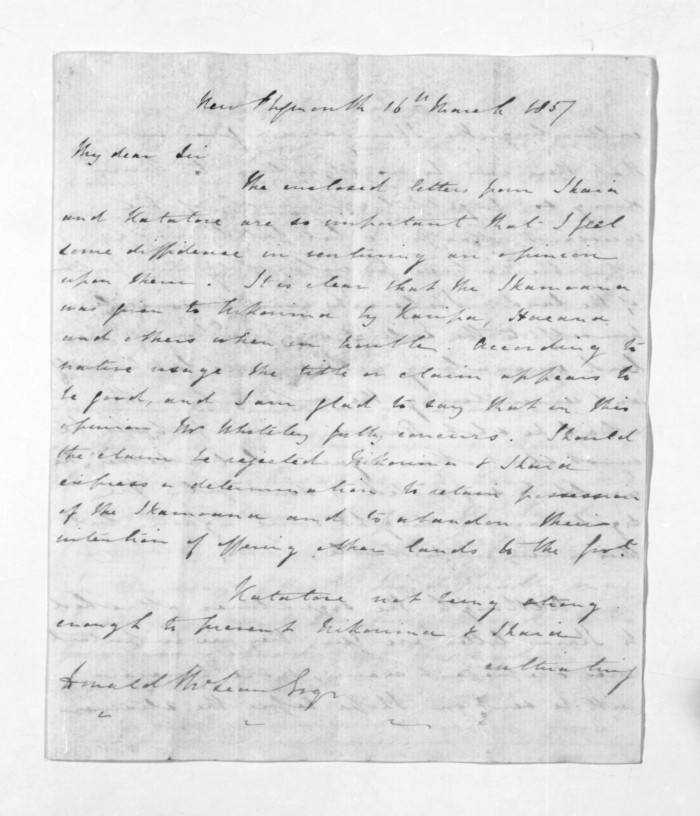 New Plymouth 16th March 1857
My dear Sir
The enclosed letters from Ikaia
and Katatore are so important that I feel
some diffidence in venturing an opinion
upon them. It is clear that the Ikamoana
was given to Nikorima by Raripa,
and others when in trouble. According to
native usage the title or claim appears to
be good, and I am glad to say that in this
opinion Mr Whiteley fully concurs. Should
the claim be rejected Nikorima & Ikaia
express a determination to retain possession
of the Ikamoana and to abandon their
intention of offering other lands to the Govt.
Katatore not being strong
enough to prevent Nikorima & Ikaia
cultivating
Donald McLean Esqr